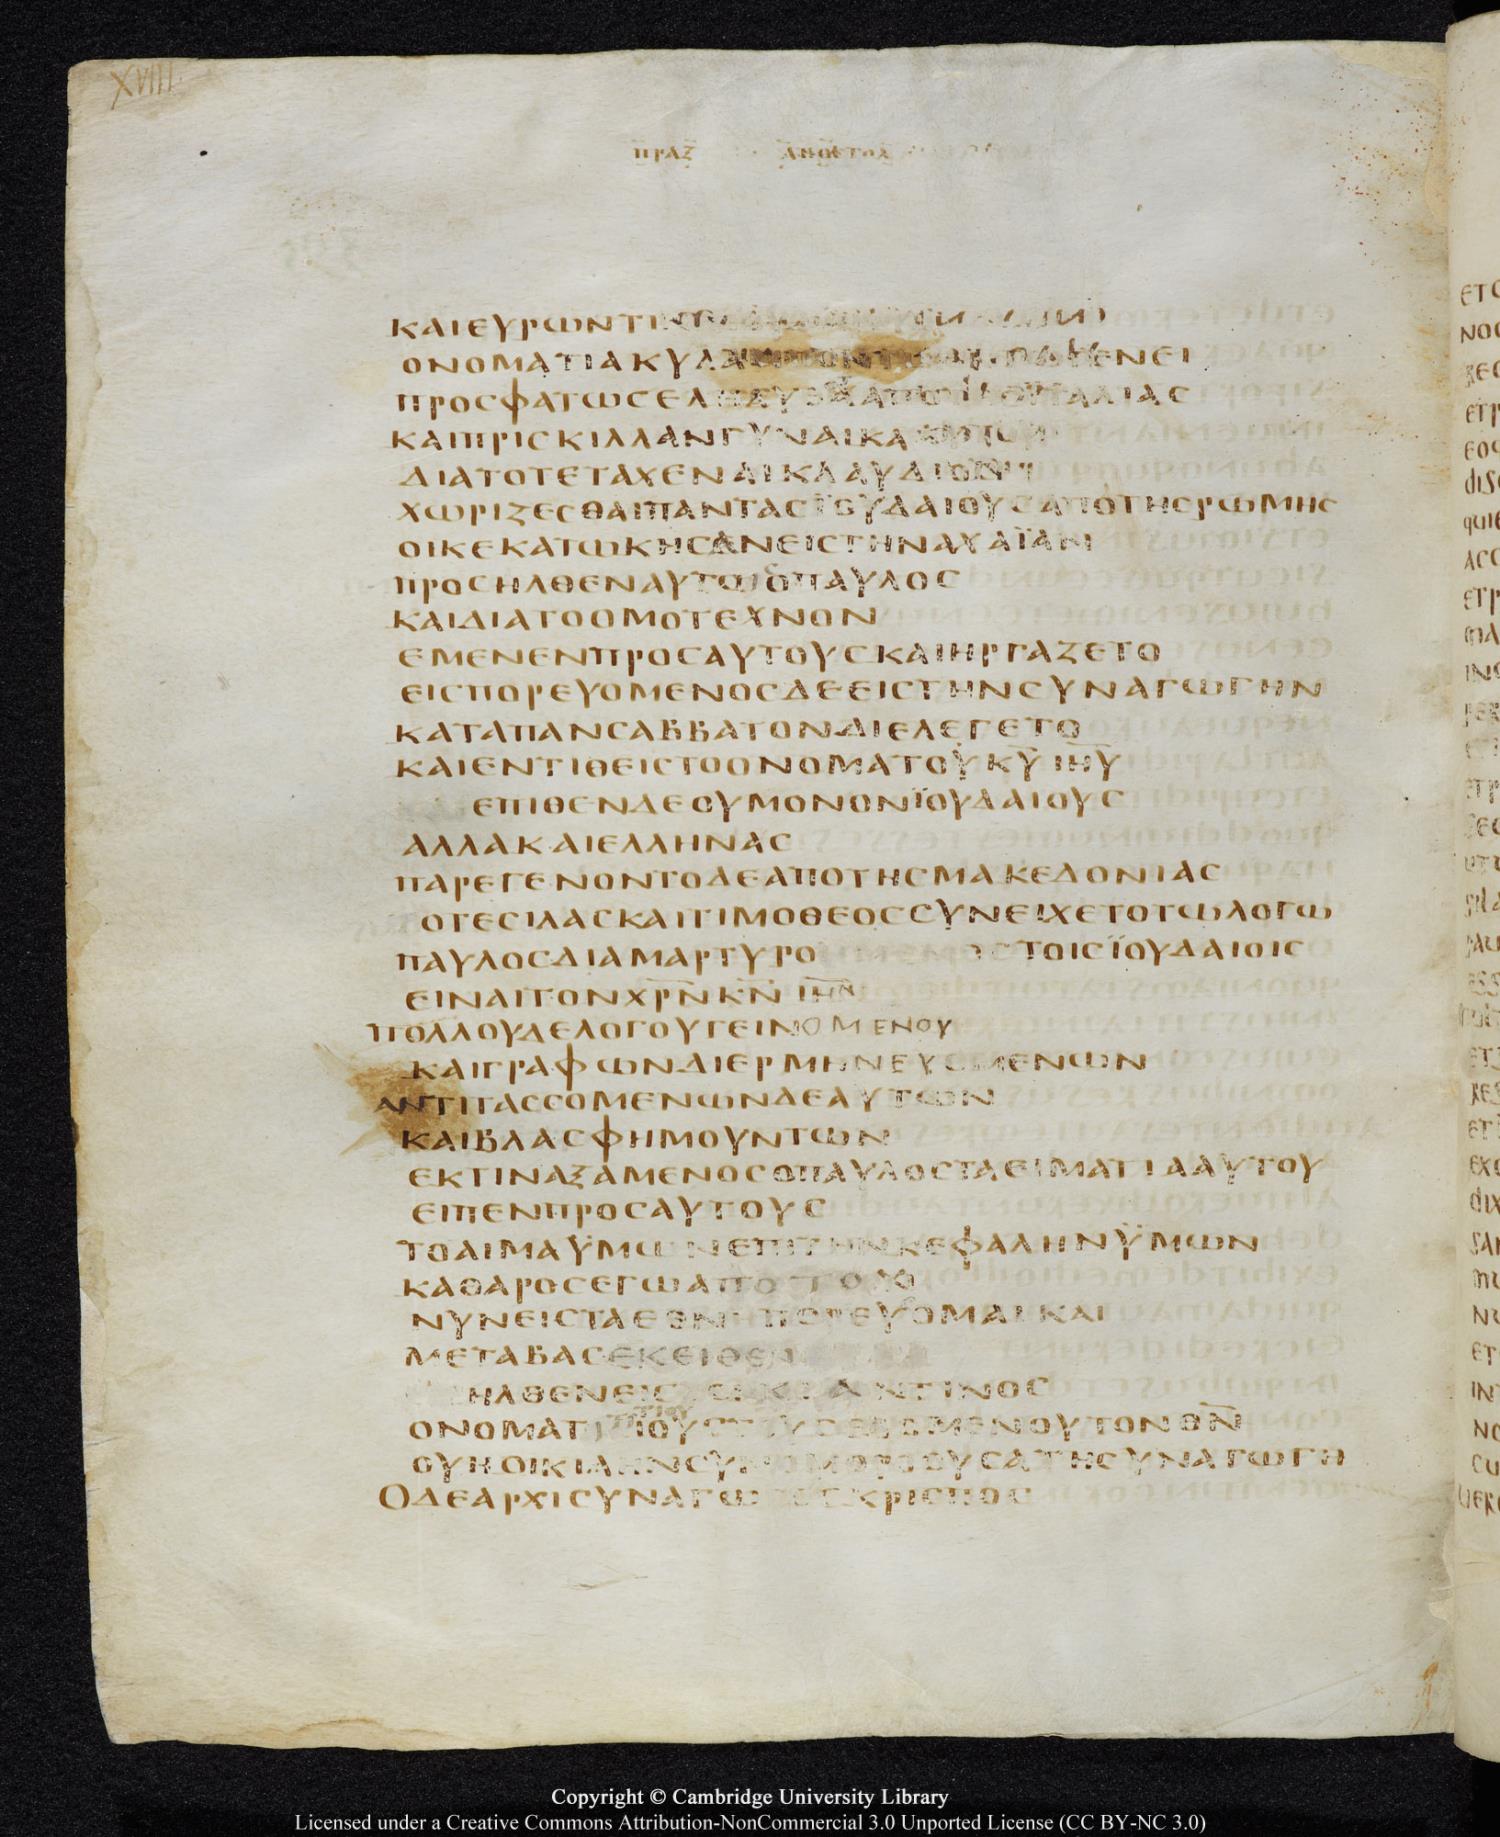 XVIII
ΠΡΑΞ ΑΠΟΣΤΟΛ
ΚΑΙΕΥΡΩΝΤΙΝΑ
ΟΝΟΜΑΤΙΑΚΥΛΑΝ ΓΕΝΕΙ
ΠΡΟΣΦΑΤΩΣΕΛΗΛΥΘΟΤΑΑΠΟΤΗΣΙΤΑΛΙΑΣ
ΚΑΙΠΡΙΣΚΙΛΛΑΝΓΥΝΑΙΚΑΑΥΤΟΥ
ΔΙΑΤΟΤΕΤΑΧΕΝΑΙΚΛΑΥΔΙΟΝ
ΧΩΡΙΖΕΣΘΑΙΠΑΝΤΑΣΪΟΥΔΑΙΟΥΣΑΠΟΤΗΣΡΩΜΗΣ
ΟΙΚΕΚΑΤΩΚΗΣΑΝΕΙΣΤΗΝΑΧΑΪΑΝ
ΠΡΟΣΗΛΘΕΝΑΥΤΩΟΠΑΥΛΟΣ
ΚΑΙΔΙΑΤΟΟΜΟΤΕΧΝΟΝ
ΕΜΕΝΕΝΠΡΟΣΑΥΤΟΥΣΚΑΙΗΡΓΑΖΕΤΟ
ΕΙΣΠΟΡΕΥΟΜΕΝΟΣΔΕΕΙΣΤΗΝΣΥΝΑΓΩΓΗΝ
ΚΑΤΑΠΑΝΣΑΒΒΑΤΟΝΔΙΕΛΕΓΕΤΟ
ΚΑΙΕΝΤΙΘΕΙΣΤΟΟΝΟΜΑΤΟΥΚΥ̅ΙΗΥ̅
ΕΠΙΘΕΝΔΕΟΥΜΟΝΟΝΪΟΥΔΑΙΟΥΣ
ΑΛΛΑΚΑΙΕΛΛΗΝΑΣ
ΠΑΡΕΓΕΝΟΝΤΟΔΕΑΠΟΤΗΣΜΑΚΕΔΟΝΙΑΣ
ΟΤΕΣΙΛΑΣΚΑΙΤΙΜΟΘΕΟΣΣΥΝΕΙΧΕΤΟΤΩΛΟΓΩ
ΠΑΥΛΟΣΔΙΑΜΑΡΤΥΡΟ ΤΟΙΣΪΟΥΔΑΙΟΙΣ
ΕΙΝΑΙΤΟΝΧΡΝ̅ΚΝ̅ΙΗΝ̅
ΠΟΛΛΟΥΔΕΛΟΓΟΥΓΕΙΝΟΜΕΝΟΥ
ΚΑΙΓΡΑΦΩΝΔΙΕΡΜΗΝΕΥΟΜΕΝΩΝ
ΑΝΤΙΤΑΣΣΟΜΕΝΩΝΔΕΑΥΤΩΝ
ΚΑΙΒΛΑΣΦΗΜΟΥΝΤΩΝ
ΕΚΤΙΝΑΞΑΜΕΝΟΣΟΠΑΥΛΟΣΤΑΕΙΜΑΤΙΑΑΥΤΟΥ
ΕΙΠΕΝΠΡΟΣΑΥΤΟΥΣ
ΤΟΑΙΜΑΫΜΩΝΕΠΙΤΗΝΚΕΦΑΛΗΝΫΜΩΝ
ΚΑΘΑΡΟΣΕΓΩΑΠΟ
ΝΥΝΕΙΣΤΑΕΘΝΗΠΟΡΕΥΟΜΑΙΚΑΙ
ΜΕΤΑΒΑΣΕΚΕΙΘΕΝ
ΗΛΘΕΝΕΙΣ ΤΙΝΟΣ
ΟΝΟΜΑΤΙ ΙΟΥΣΤΟΥΣΕΒΟΜΕΝΟΥΤΟΝΘΝ̅
ΟΥΗΟΙΚΙΑΗΝΣΥΝΟΜΟΡΟΥΣΑΤΗΣΥΝΑΓΩΓΗ
ΟΔΕΑΡΧΙΣΥΝΑΓΩΓΟΣΚΡΙΣΠΟΣ
Copyright © Cambridge University Library
Licensed under a Creative Commons Attribution-NonCommercial 3.0 Unported License (CC BY-NC 3.0)